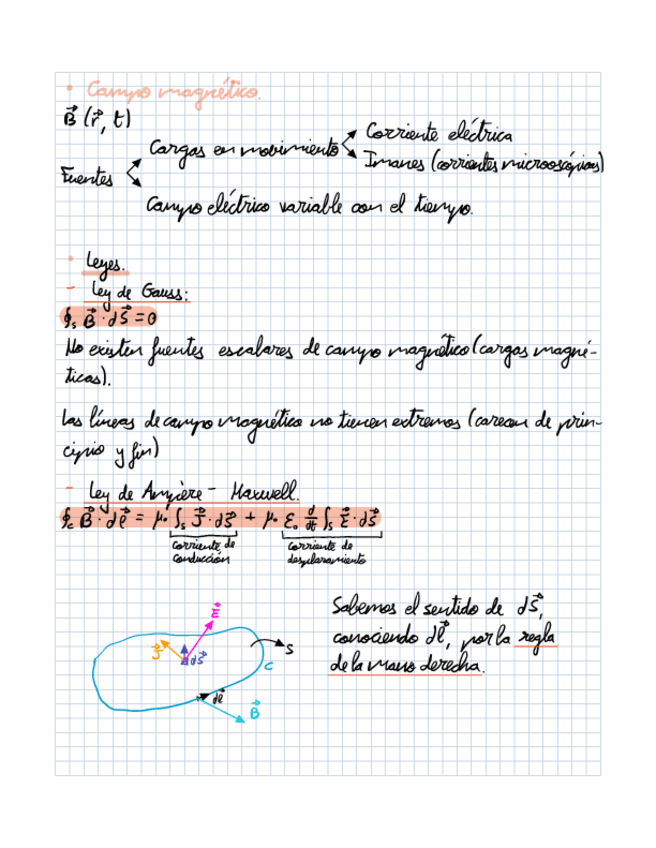 • Campo magnético.
B⃗ (r⃗, t)
Fuentes
Cargas en movimiento
Corriente eléctrica
Imanes (corrientes microoscópicas)
Campo eléctrico variable con el tiempo.
• Leyes.
- Ley de Gauss:
∮ₛ B⃗ · dS⃗ = 0
No existen fuentes escalares de campo magnético (cargas magné-
ticas).
Las líneas de campo magnético no tienen extremos (carecen de prin-
cipio y fin)
- Ley de Ampère - Maxwell.
∮c B⃗ · dℓ⃗ = μ₀ ∫ₛ J⃗ · dS⃗ + μ₀ ε₀ d/dt ∫ₛ E⃗ · dS⃗
corriente de
conducción
corriente de
desplazamiento
Sabemos el sentido de dS⃗,
conociendo dℓ⃗, por la regla
de la mano derecha.
E⃗
J⃗
dS⃗
S
C
dℓ⃗
B⃗